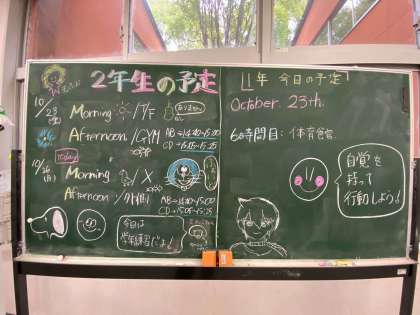 2年生の予定
10/23
Morning / T/F
ありません
Afternoon / GYM
AB→14:40~15:00
CD→15:05~15:25
10/26
today
Morning / X
Afternoon /
AB→14:40~15:00
CD→15:05~15:25
今日は
学年練習だよ!
1年 今日の予定
October. 23th.
6時間目:体育館
自覚を
持って
行動しよう!